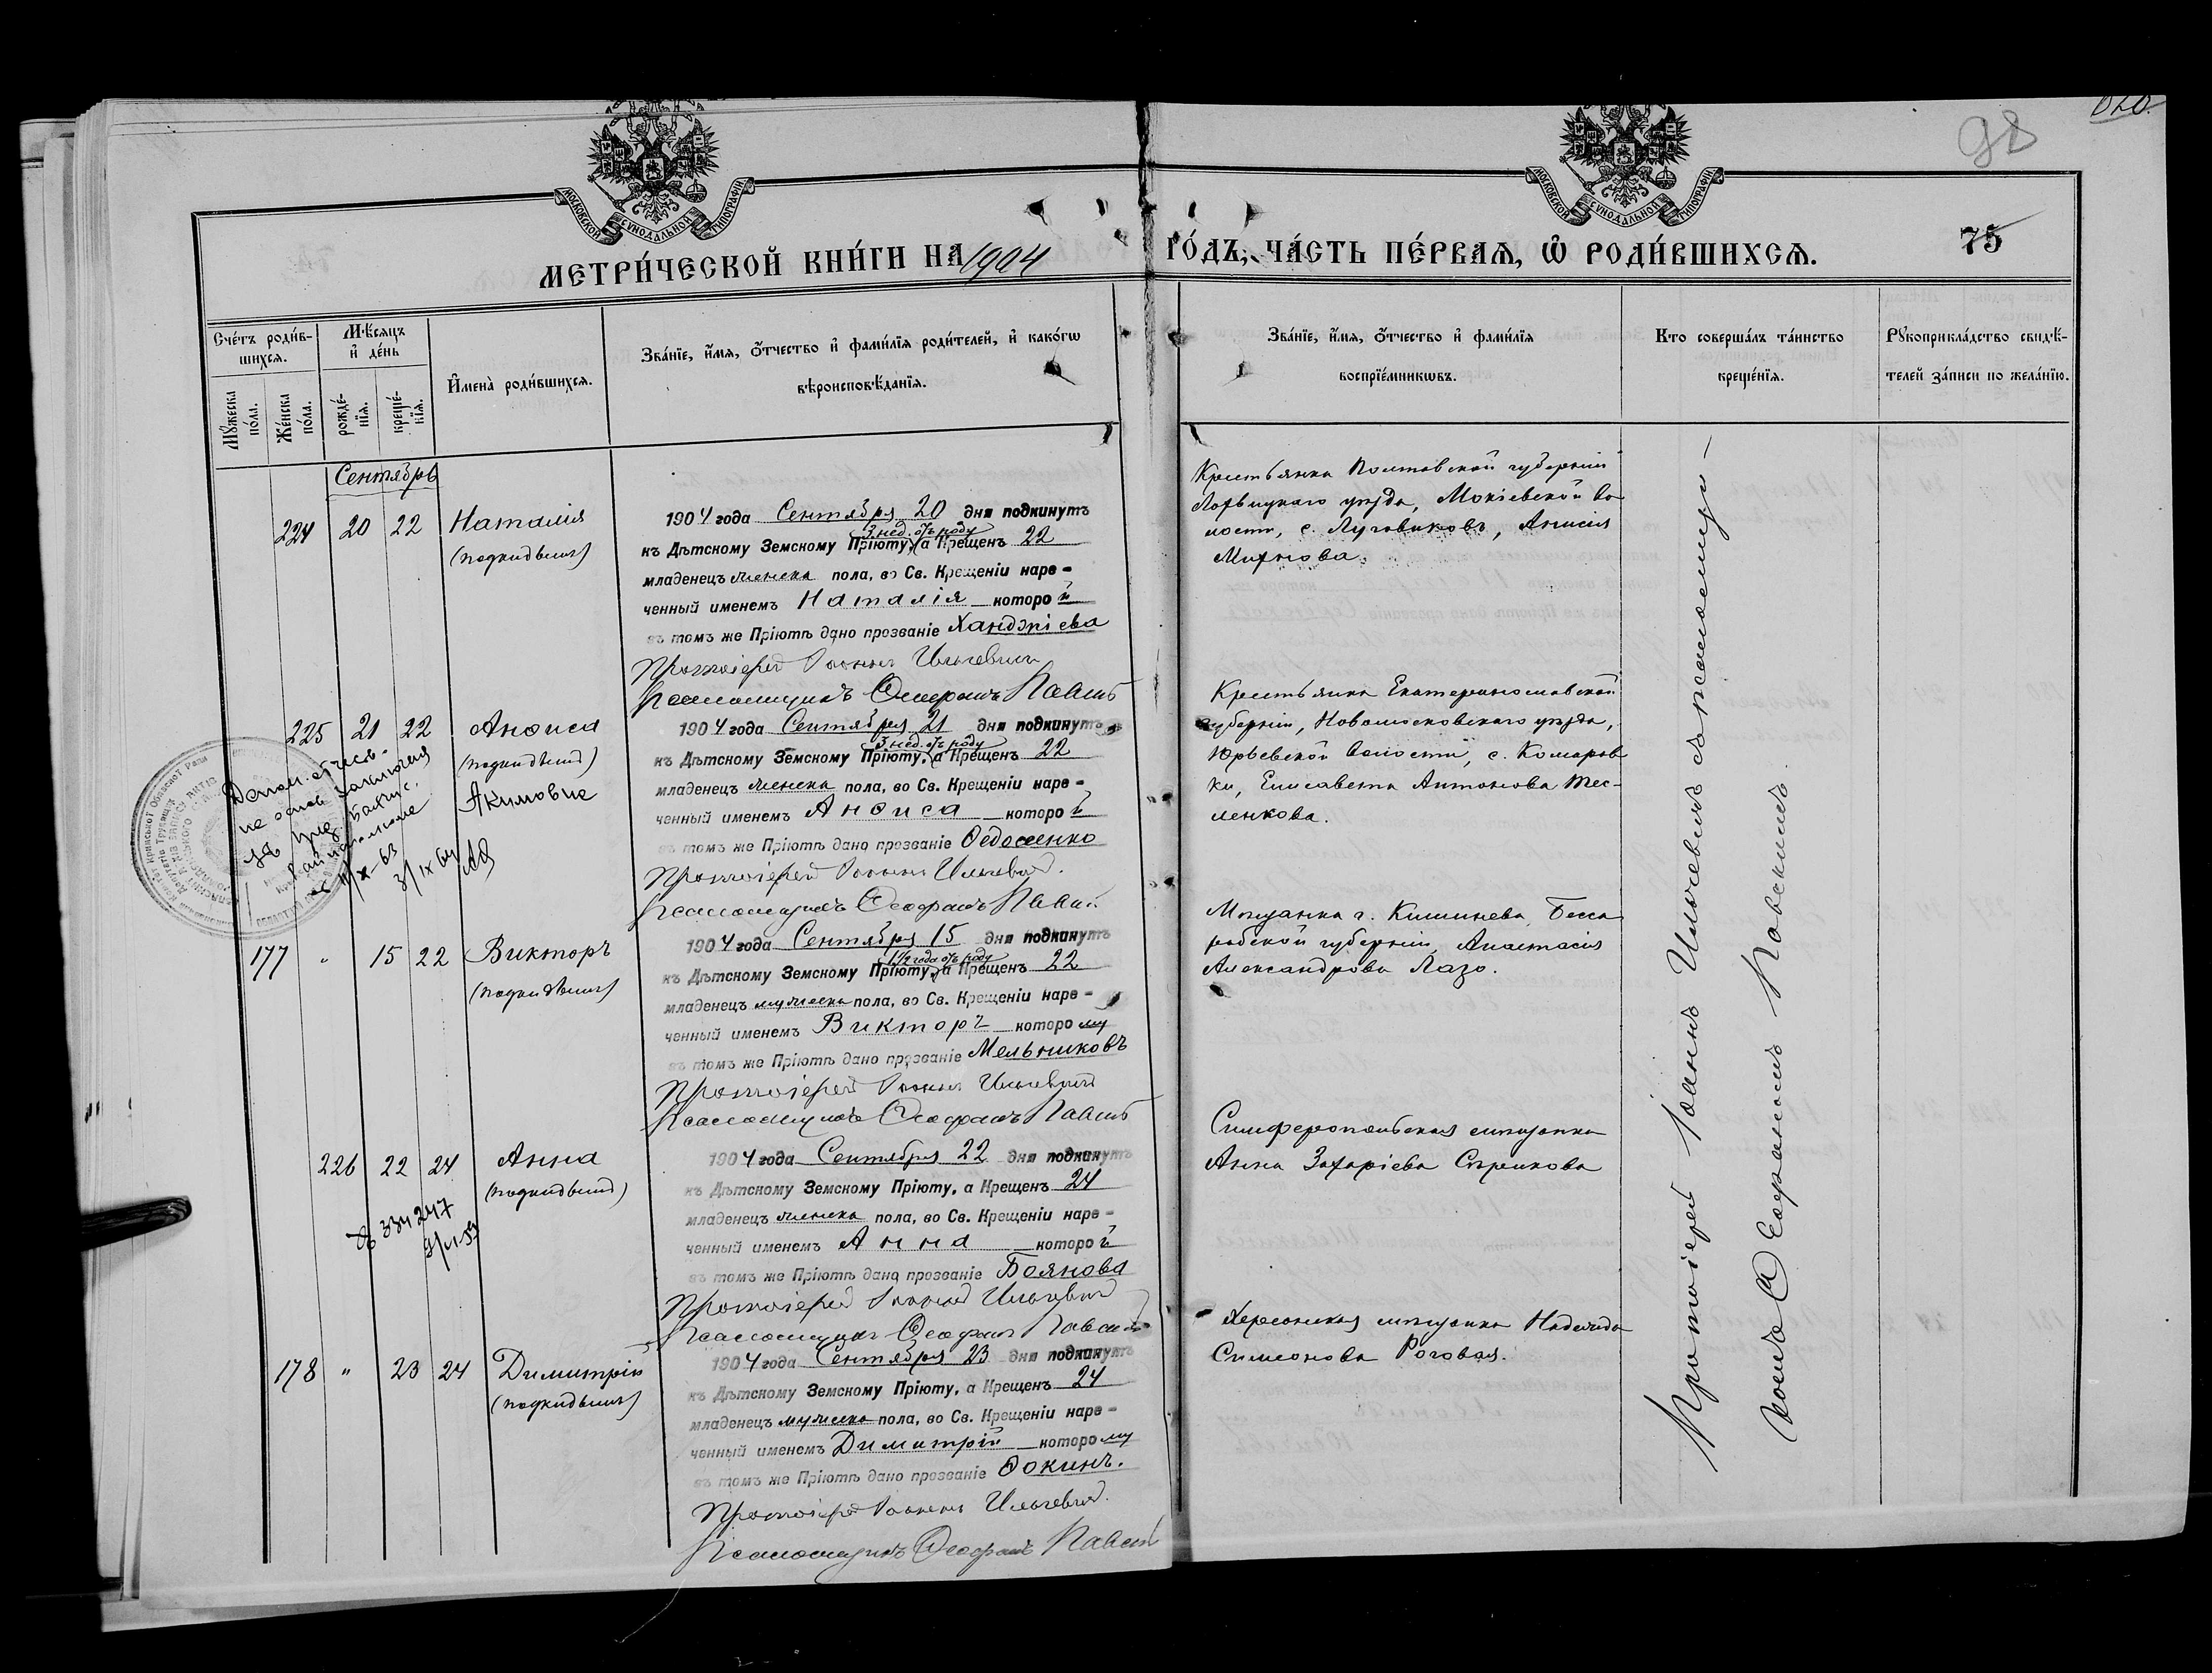 98
75
МОСКОВСКОЙ СѴНОДАЛЬНОЙ ТИПОГРАФІИ
МОСКОВСКОЙ СѴНОДАЛЬНОЙ ТИПОГРАФІИ
МЕТРИ́ЧЕСКОЙ КНИ́ГИ НА 1904 ГО́ДЪ, ЧА́СТЬ ПЕ́РВАѦ, Ѡ РОДИ́ВШИХСѦ.
Сче́тъ роди́в-
шихсѧ.
Мꙋ́жеска по́ла.
Же́нска по́ла.
М҄ѣсѧцъ и҆ де́нь
рожде́-
нїѧ.
креще́-
нїѧ.
И҆мена̀ роди́вшихсѧ.
Зва́нїе, и҆́мѧ, ѻ҆́тчество и҆ фами́лїѧ роди́телей, и҆ како́гѡ
вѣроисповѣ́данїѧ.
Зва́нїе, и҆́мѧ, ѻ҆́тчество и҆ фами́лїѧ
воспрїе́мникѡвъ.
Кто соверша́лъ та́инство
креще́нїѧ.
Рꙋкоприкла́дство свидѣ́-
телей за́писи по жела́нїю.
Сентябрь
224 20 22 Наталія
(подкидышъ)
1904 года Сентября 20 дня подкинутъ
3 нед. отъ роду
къ Дѣтскому Земскому Пріюту, а Крещенъ 22
младенецъ женска пола, во Св. Крещеніи наре-
ченный именемъ Наталія которой
въ томъ же Пріютѣ дано прозваніе Ханджіева
Протоіерей Іоаннъ Ильчевичъ
Псаломщикъ
Крестьянка Полтавской губерніи
Лохвицкаго уѣзда, во-
лости, с. Анисія
225 21 22 Анѳиса
(подкидышъ)
Акимовна
1904 года Сентября 21 дня подкинутъ
3 нед. отъ роду
къ Дѣтскому Земскому Пріюту, а Крещенъ 22
младенецъ женска пола, во Св. Крещеніи наре-
ченный именемъ Анѳиса которой
въ томъ же Пріютѣ дано прозваніе
Протоіерей Іоаннъ Ильчевичъ.
Псаломщикъ
Крестьянка Екатеринославской
губерніи, Новомосковскаго уѣзда,
Юрьевской волости, с. Комаров-
ки, Елисавета Антонова Тес-
ленкова.
177 " 15 22 Викторъ
(подкидышъ)
1904 года Сентября 15 дня подкинутъ
1½ года отъ роду
къ Дѣтскому Земскому Пріюту, а Крещенъ 22
младенецъ мужеска пола, во Св. Крещеніи наре-
ченный именемъ Викторъ которому
въ томъ же Пріютѣ дано прозваніе Мельниковъ
Протоіерей Іоаннъ Ильчевичъ
Псаломщикъ
Мѣщанка г. Кишинева, Бесса-
рабской губерніи, Анастасія
Александрова Лазо.
226 22 24 Анна
(подкидышъ)
1904 года Сентября 22 дня подкинутъ
къ Дѣтскому Земскому Пріюту, а Крещенъ 24
младенецъ женска пола, во Св. Крещеніи наре-
ченный именемъ Анна которой
въ томъ же Пріютѣ дано прозваніе Боянова
Протоіерей Іоаннъ Ильчевичъ
Псаломщикъ
Симферопольская мѣщанка
Анна Захаріева
178 " 23 24 Димитрій
(подкидышъ)
1904 года Сентября 23 дня подкинутъ
къ Дѣтскому Земскому Пріюту, а Крещенъ 24
младенецъ мужеска пола, во Св. Крещеніи наре-
ченный именемъ Димитрій которому
въ томъ же Пріютѣ дано прозваніе Ѳокинъ.
Протоіерей Іоаннъ Ильчевичъ.
Псаломщикъ
Херсонская мѣщанка Надежда
Симеонова Роговая.
Протоіерей Іоаннъ Ильчевичъ съ псаломщи-
комъ